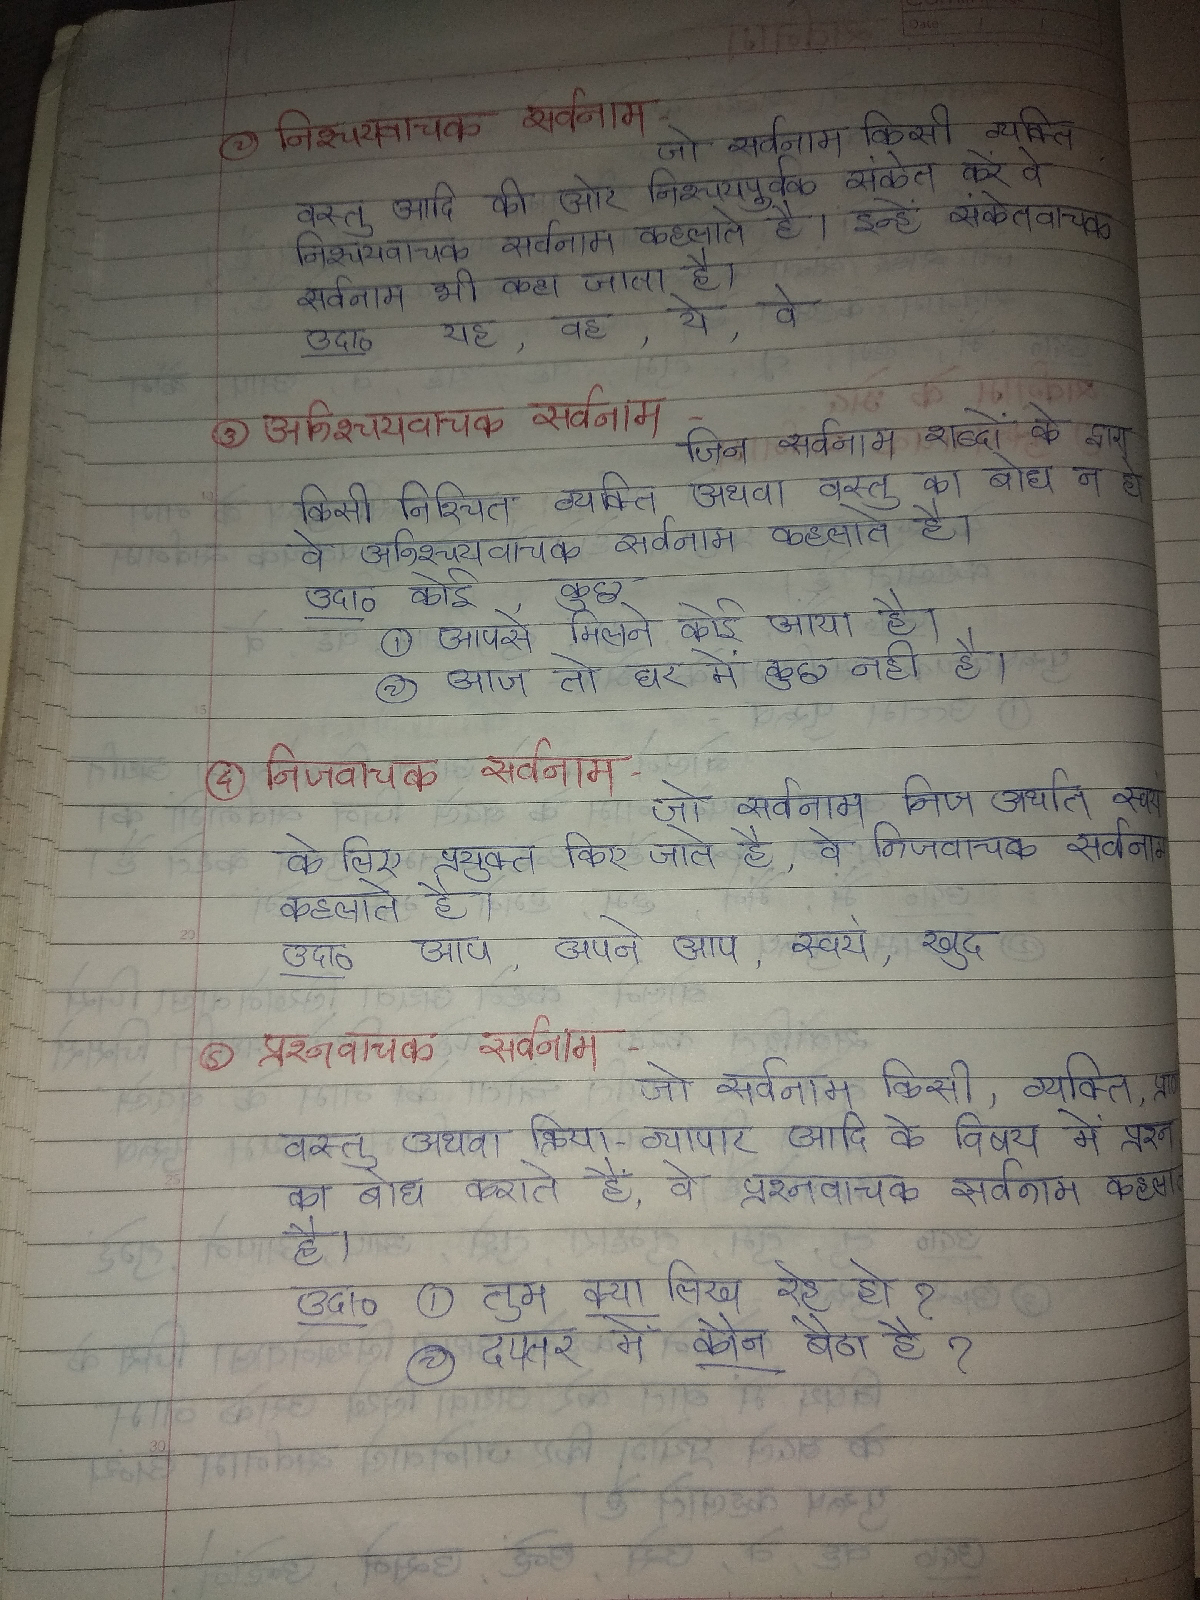 ② निश्चयवाचक सर्वनाम -
जो सर्वनाम किसी व्यक्ति
वस्तु आदि की ओर निश्चयपूर्वक संकेत करें वे
निश्चयवाचक सर्वनाम कहलाते है। इन्हें संकेतवाचक
सर्वनाम भी कहा जाता है।
उदा० यह , वह , ये , वे
③ अनिश्चयवाचक सर्वनाम -
जिन सर्वनाम शब्दों के द्वारा
किसी निश्चित व्यक्ति अथवा वस्तु का बोध न हो
वे अनिश्चयवाचक सर्वनाम कहलाते है।
उदा० कोई , कुछ
① आपसे मिलने कोई आया है।
② आज तो घर में कुछ नही है।
④ निजवाचक सर्वनाम -
जो सर्वनाम निज अर्थात स्वयं
के लिए प्रयुक्त किए जाते है , वे निजवाचक सर्वनाम
कहलाते है।
उदा० आप , अपने आप , स्वयं , खुद
⑤ प्रश्नवाचक सर्वनाम -
जो सर्वनाम किसी , व्यक्ति ,
वस्तु अथवा क्रिया-व्यापार आदि के विषय में प्रश्न
का बोध कराते हैं, वे प्रश्नवाचक सर्वनाम
है।
उदा० ① तुम क्या लिख रहे हो ?
② दफ्तर में कौन बैठा है ?